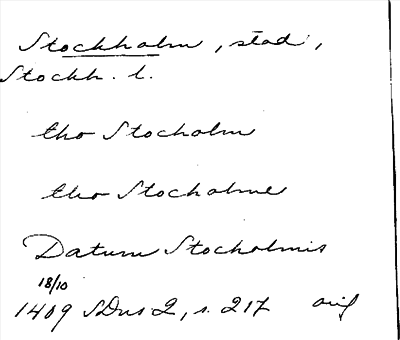 Stockholm, stad,
Stockh. l.
tho Stocholm
tho Stocholme
Datum Stocholmis
18/10
1409 SDns 2, s. 217 orig